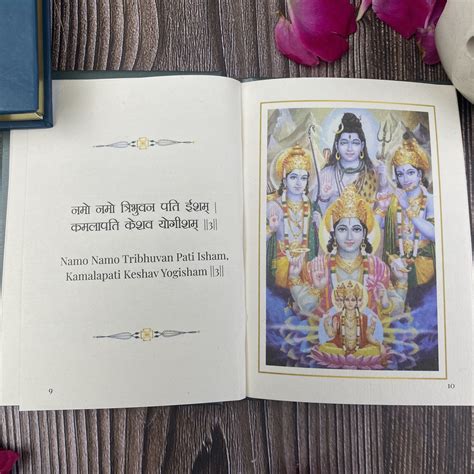 नमो नमो त्रिभुवन पति ईशम् |
कमलापति केशव योगीशम् ||३||
Namo Namo Tribhuvan Pati Isham,
Kamalapati Keshav Yogisham ||3||
9
10